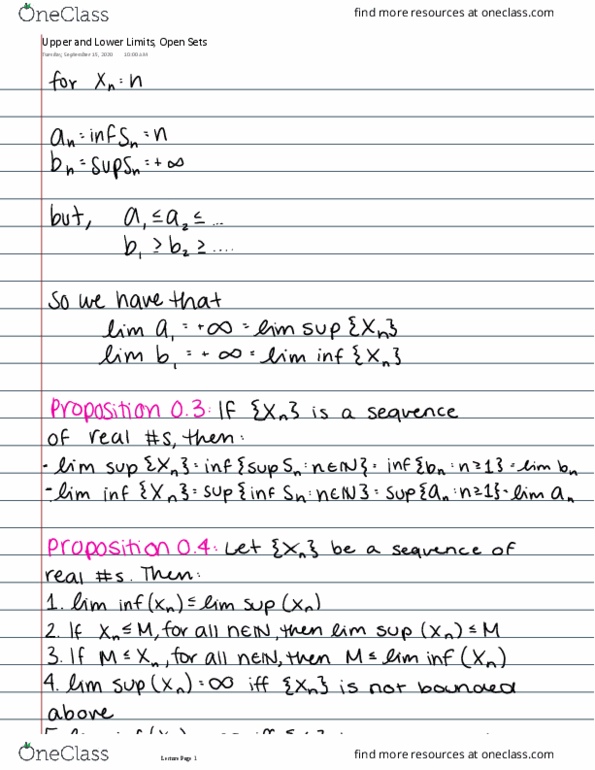 OneClass
find more resources at oneclass.com
Upper and Lower Limits, Open Sets
Tuesday, September 15, 2020 10:00 AM
for Xn = n
an = inf Sn = n
bn = sup Sn = +∞
but, a1 ≤ a2 ≤ ...
b1 ≥ b2 ≥ ....
so we have that
lim a1 = +∞ = lim sup {Xn}
lim b1 = +∞ = lim inf {Xn}
Proposition 0.3: If {Xn} is a sequence
of real #s, then:
- lim sup {Xn} = inf{sup Sn : n∈ℕ} = inf{bn : n≥1} = lim bn
- lim inf {Xn} = sup{inf Sn : n∈ℕ} = sup{an : n≥1} = lim an
Proposition 0.4: Let {Xn} be a sequence of
real #s. Then:
1. lim inf(xn) ≤ lim sup (xn)
2. If Xn ≤ M, for all n∈ℕ, then lim sup (xn) ≤ M
3. If M ≤ Xn, for all n∈ℕ, then M ≤ lim inf (Xn)
4. lim sup (xn) = ∞ iff {Xn} is not bounded
above
OneClass
Lecture Page 1
find more resources at oneclass.com